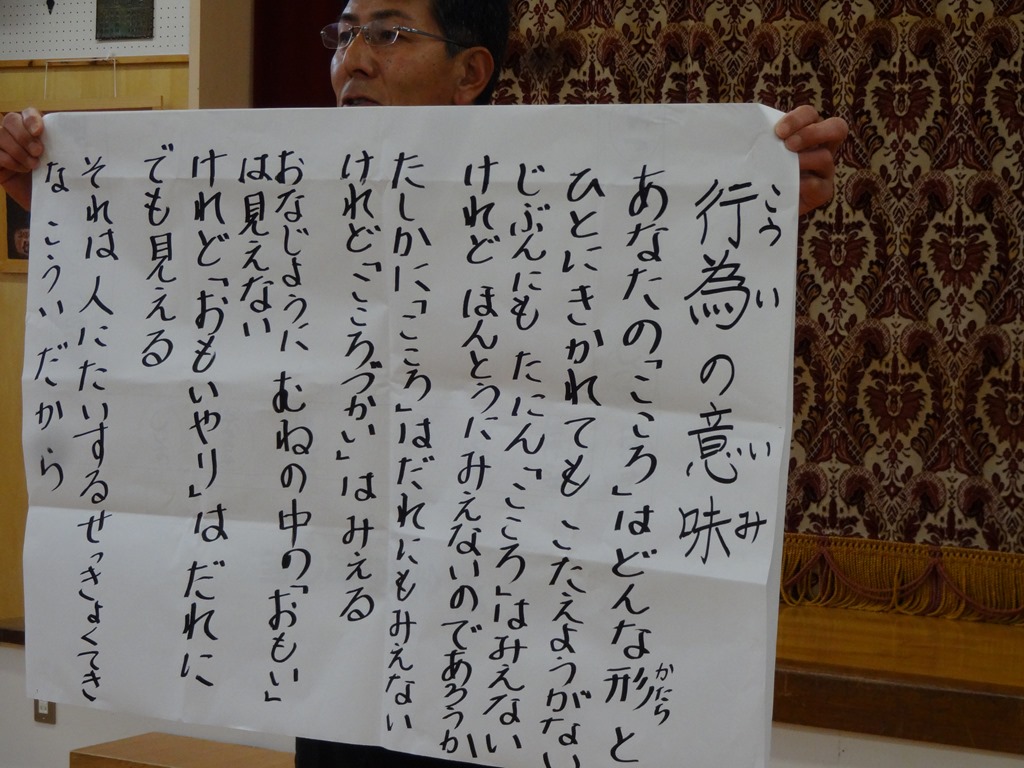 行為の意味
こうい いみ
あなたの「こころ」はどんな形と
かたち
ひとにきかれても こたえようがない
じぶんにも たにん「こころ」はみえない
けれど ほんとうにみえないのであろうか
たしかに「こころ」はだれにもみえない
けれど「こころづかい」はみえる
おなじように むねの中の「おもい」
は見えない
けれど「おもいやり」は だれに
でも見える
それは 人にたいするせっきょくてき
な こういだから